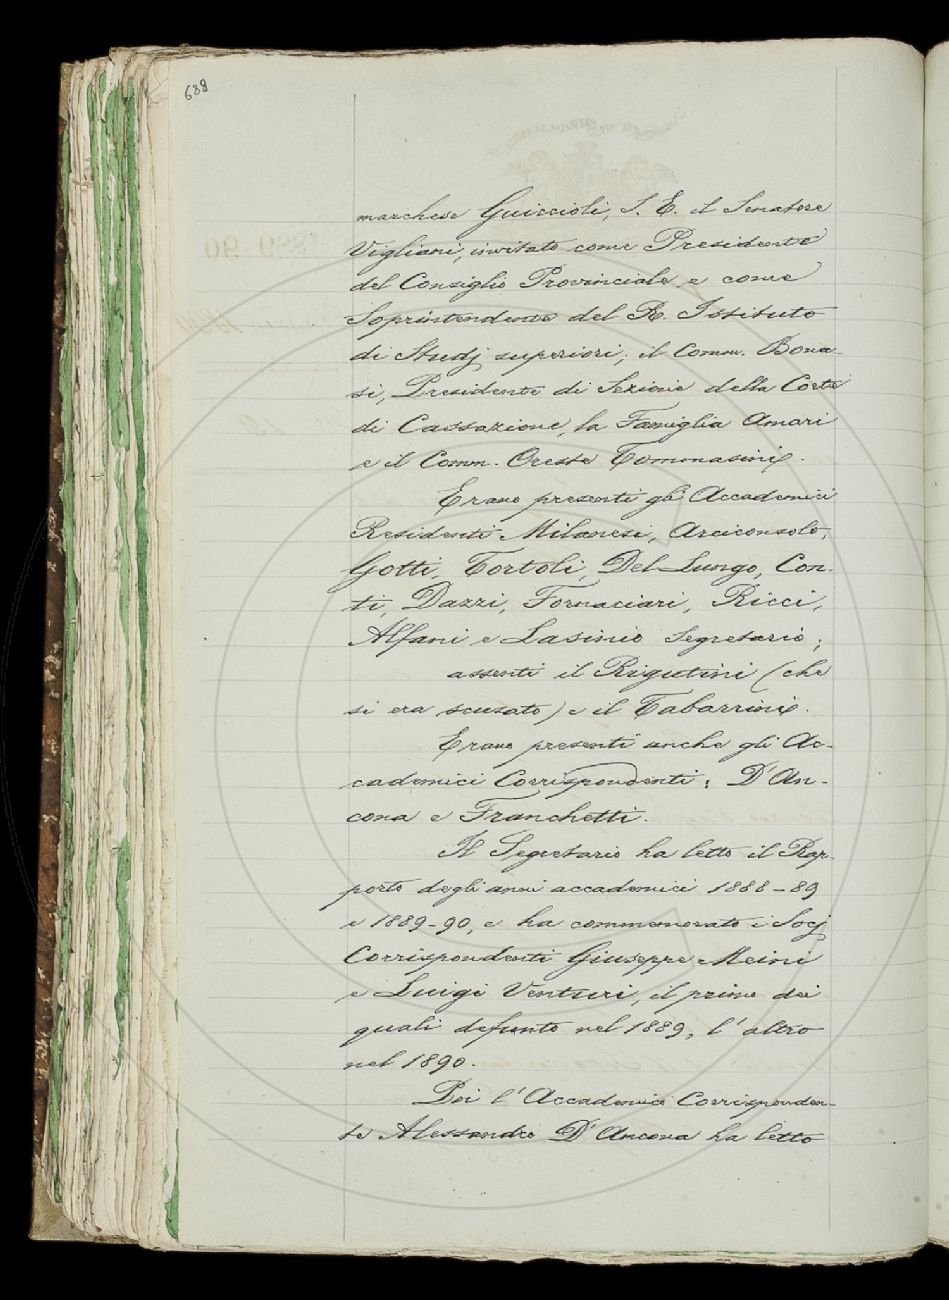 688
marchese Guiccioli, S. E. il Senatore
Vigliani, invitato come Presidente
del Consiglio Provinciale e come
Soprintendente del R. Istituto
di Studj superiori; il Comm. Bona-
si, Presidente di Sezione della Corte
di Cassazione, la Famiglia Amari
e il Comm. Oreste Tommasini.
Erano presenti gli Accademici
Residenti Milanesi, Arciconsolo,
Gotti, Tortoli, Del Lungo, Con-
ti, Dazzi, Fornaciari, Ricci,
Alfani e Lasinio Segretario;
assenti il Rigutini (che
si era scusato) e il Tabarrini.
Erano presenti anche gli Ac-
cademici Corrispondenti: D'An-
cona e Franchetti.
Il Segretario ha letto il Rap-
porto degli anni accademici 1888-89
e 1889-90, e ha commemorato i Socj
Corrispondenti Giuseppe Meini
e Luigi Venturi, il primo dei
quali defunto nel 1889, l'altro
nel 1890.
Poi l'Accademico Corrisponden-
te Alessandro D'Ancona ha letto